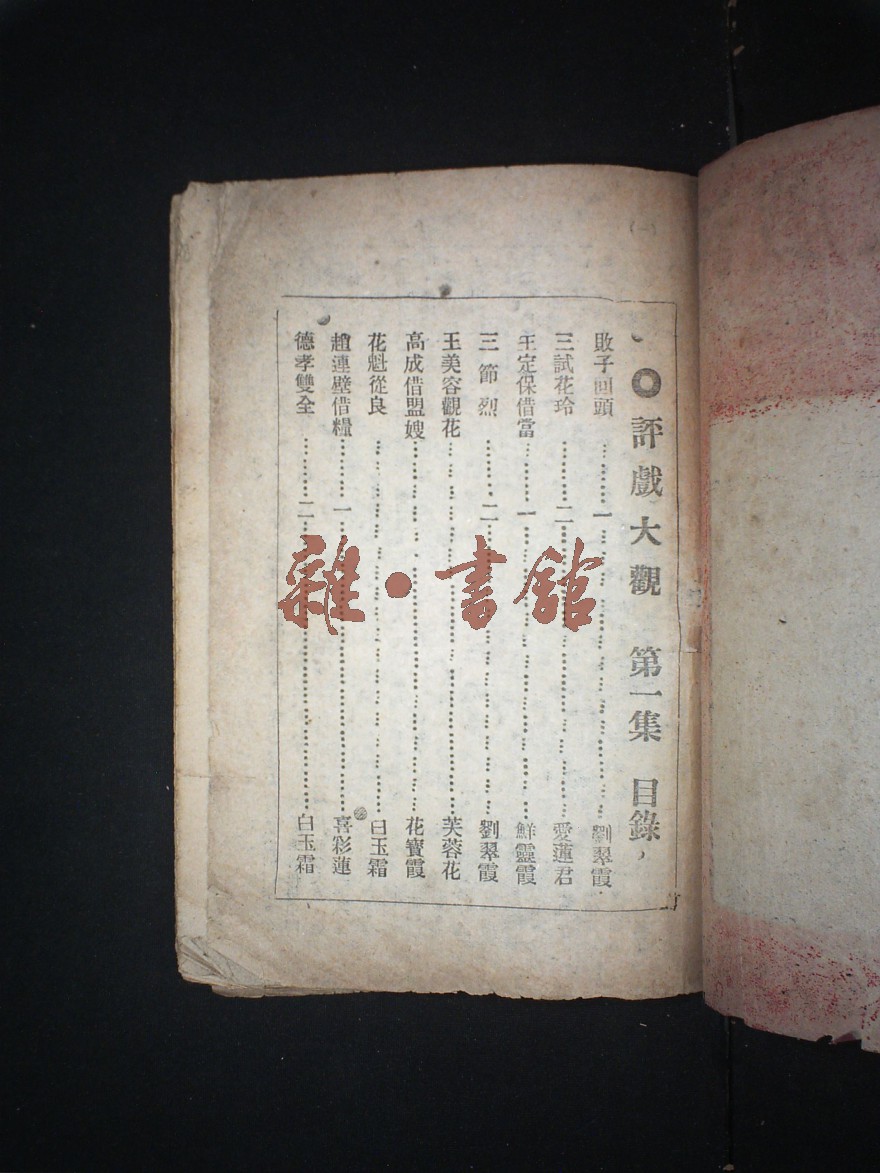 (一)
◎評戲大觀 第一集 目錄
敗子回頭……一……劉翠霞
三試花玲……二……愛蓮君
王定保借當……一……鮮靈霞
三節烈……二……劉翠霞
王美容觀花……芙蓉花
高成借盟嫂……花寶霞
花魁從良……白玉霜
趙連璧借糧……一……喜彩蓮
德孝雙全……二……白玉霜
雜·書館